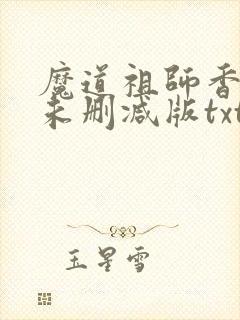 魔道祖師香
未删减版txt
玉星雪